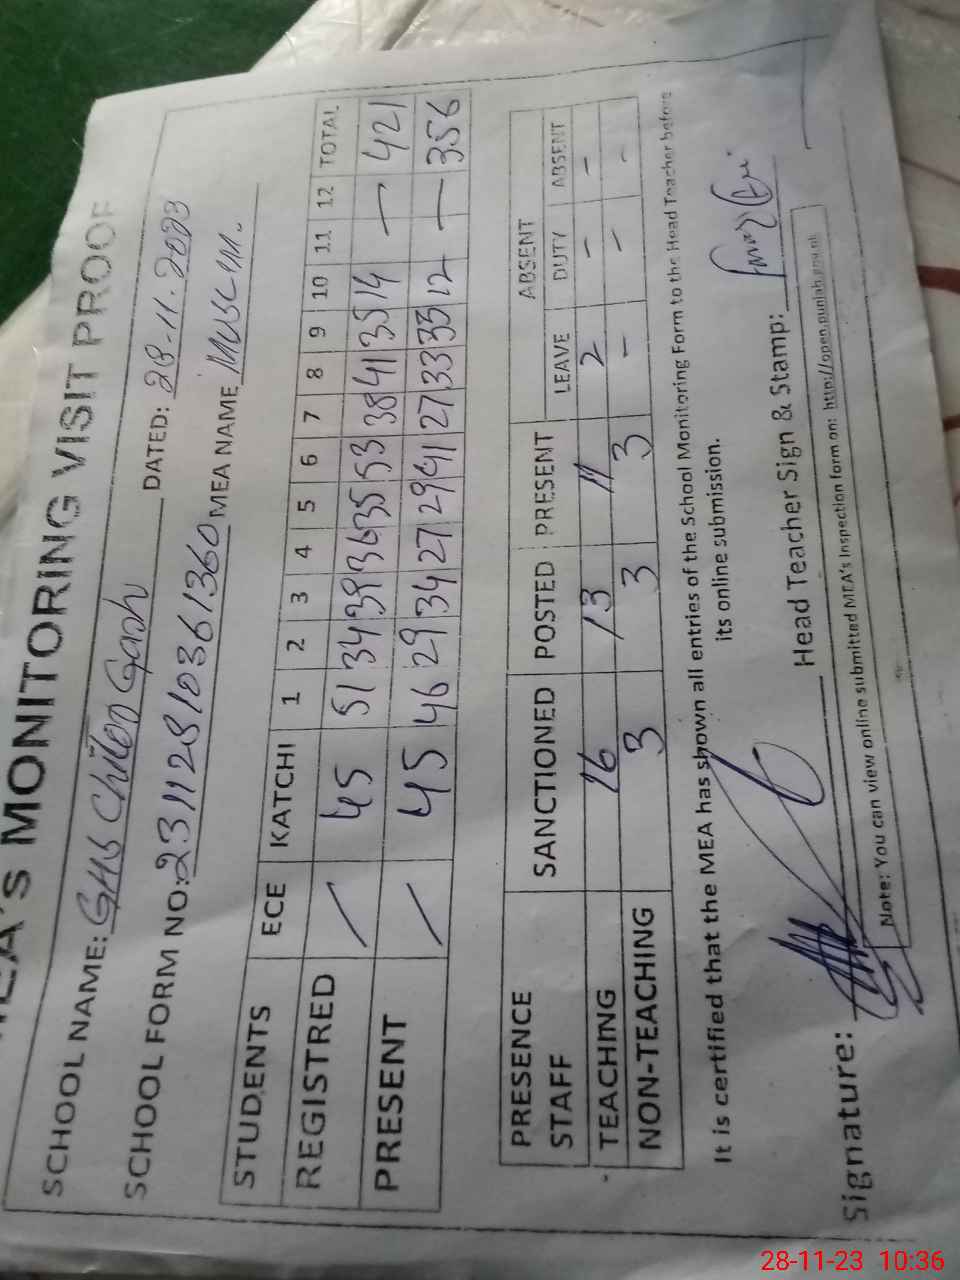 MEA's MONITORING VISIT PROOF
SCHOOL NAME: GHS DATED: 28-11-2023
SCHOOL FORM NO: MEA NAME
STUDENTS ECE KATCHI 1 2 3 4 5 6 7 8 9 10 11 12 TOTAL
REGISTRED / 45 51 34 39 36 35 53 38 41 35 14 — 421
PRESENT / 45 46 29 34 27 29 41 27 33 33 12 — 356
PRESENCE SANCTIONED POSTED PRESENT ABSENT
STAFF LEAVE DUTY ABSENT
TEACHING 16 13 11 2 - -
NON-TEACHING 3 3 3 - - -
It is certified that the MEA has shown all entries of the School Monitoring Form to the Head Teacher before
its online submission.
Signature: Head Teacher Sign & Stamp:
Note: You can view online submitted MEA's Inspection form on: http://open.punjab.gov.pk
28-11-23 10:36